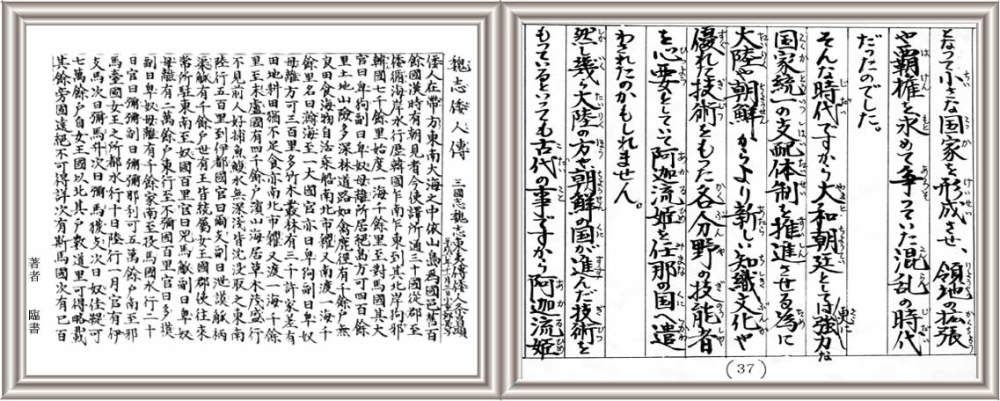 となって小さな国家を形成させ、領地の拡張
や覇権を求めて争っていた混乱の時代
だったのでした。
そんな時代ですから大和朝廷としては更に強力な
国家統一の支配体制を推進させる為に
大陸や朝鮮からより新しい知識文化や
優れた技術をもった各分野の技能者
を必要としていて阿加流姫を任那の国へ遣
わされたのかもしれません。
然し幾ら大陸の方や朝鮮の国が進んだ技術を
もっているといっても古代の事ですから阿加流姫
(37)
魏志倭人傳 三國志魏志東夷傳倭人条
倭人在帶方東南大海之中依山島爲國邑舊百
餘國漢時有朝見者今使譯所通三十國從郡至
倭循海岸水行歴韓國乍南乍東到其北岸狗邪
韓國七千餘里始度一海千餘里至對馬國其大
官曰卑狗副曰卑奴母離所居絶島方可四百餘
里土地山險多深林道路如禽鹿徑有千餘户無
良田食海物自活乗船南北市糴又南渡一海千
餘里名曰瀚海至一大國官亦曰卑狗副曰卑奴
母離方可三百里多竹木叢林有三千許家差有
田地耕田猶不足食亦南北市糴又渡一海千餘
里至末盧國有四千餘户濱山海居草木茂盛行
不見前人好捕魚鰒水無深淺皆沈没取之東南
陸行五百里到伊都國官曰爾支副曰泄謨觚柄
渠觚有千餘户世有王皆統屬女王國郡使往来
常所駐東南至奴國百里官曰兕馬觚副曰卑奴
母離有二萬餘户東行至不彌國百里官曰多模
副曰卑奴母離有千餘家南至投馬國水行二十
日官曰彌彌副曰彌彌那利可五萬餘户南至邪
馬壹國女王之所都水行十日陸行一月官有伊
支馬次曰彌馬升次曰彌馬獲支次曰奴佳鞮可
七萬餘户自女王國以北其户數道里可得略載
其餘旁國遠絶不可得詳次有斯馬國次有已百
著者 臨書